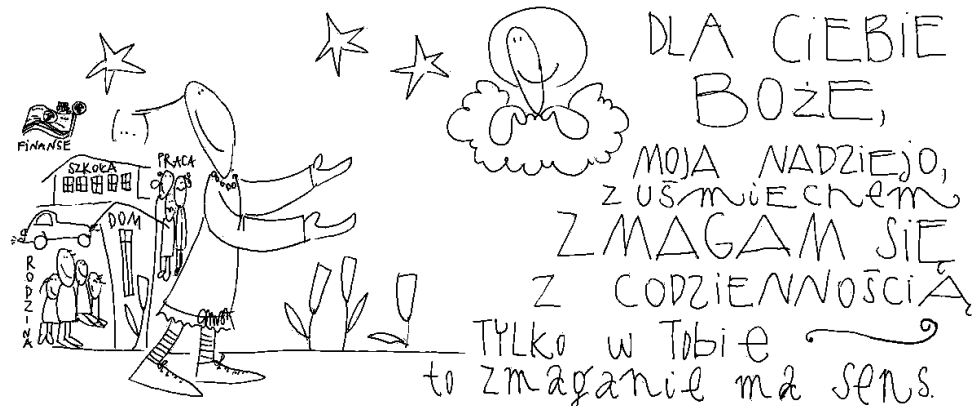 (...)
FINANSE
SZKOŁA
PRACA
DOM
RODZINA
DLA CiEBiE
BOŻE,
MOJA NADZIEJO,
Z UŚmiECHem
ZMAGAM SIĘ
Z CODZiENNOŚCiĄ
TYLKO w TObiE
to zmaganie ma sens.